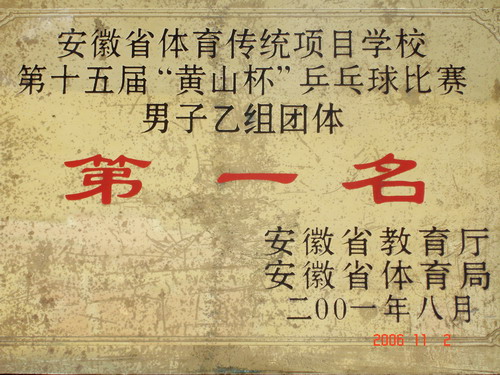 安徽省体育传统项目学校
第十五届“黄山杯”乒乓球比赛
男子乙组团体
第一名
安徽省教育厅
安徽省体育局
二00一年八月
2006 11 2